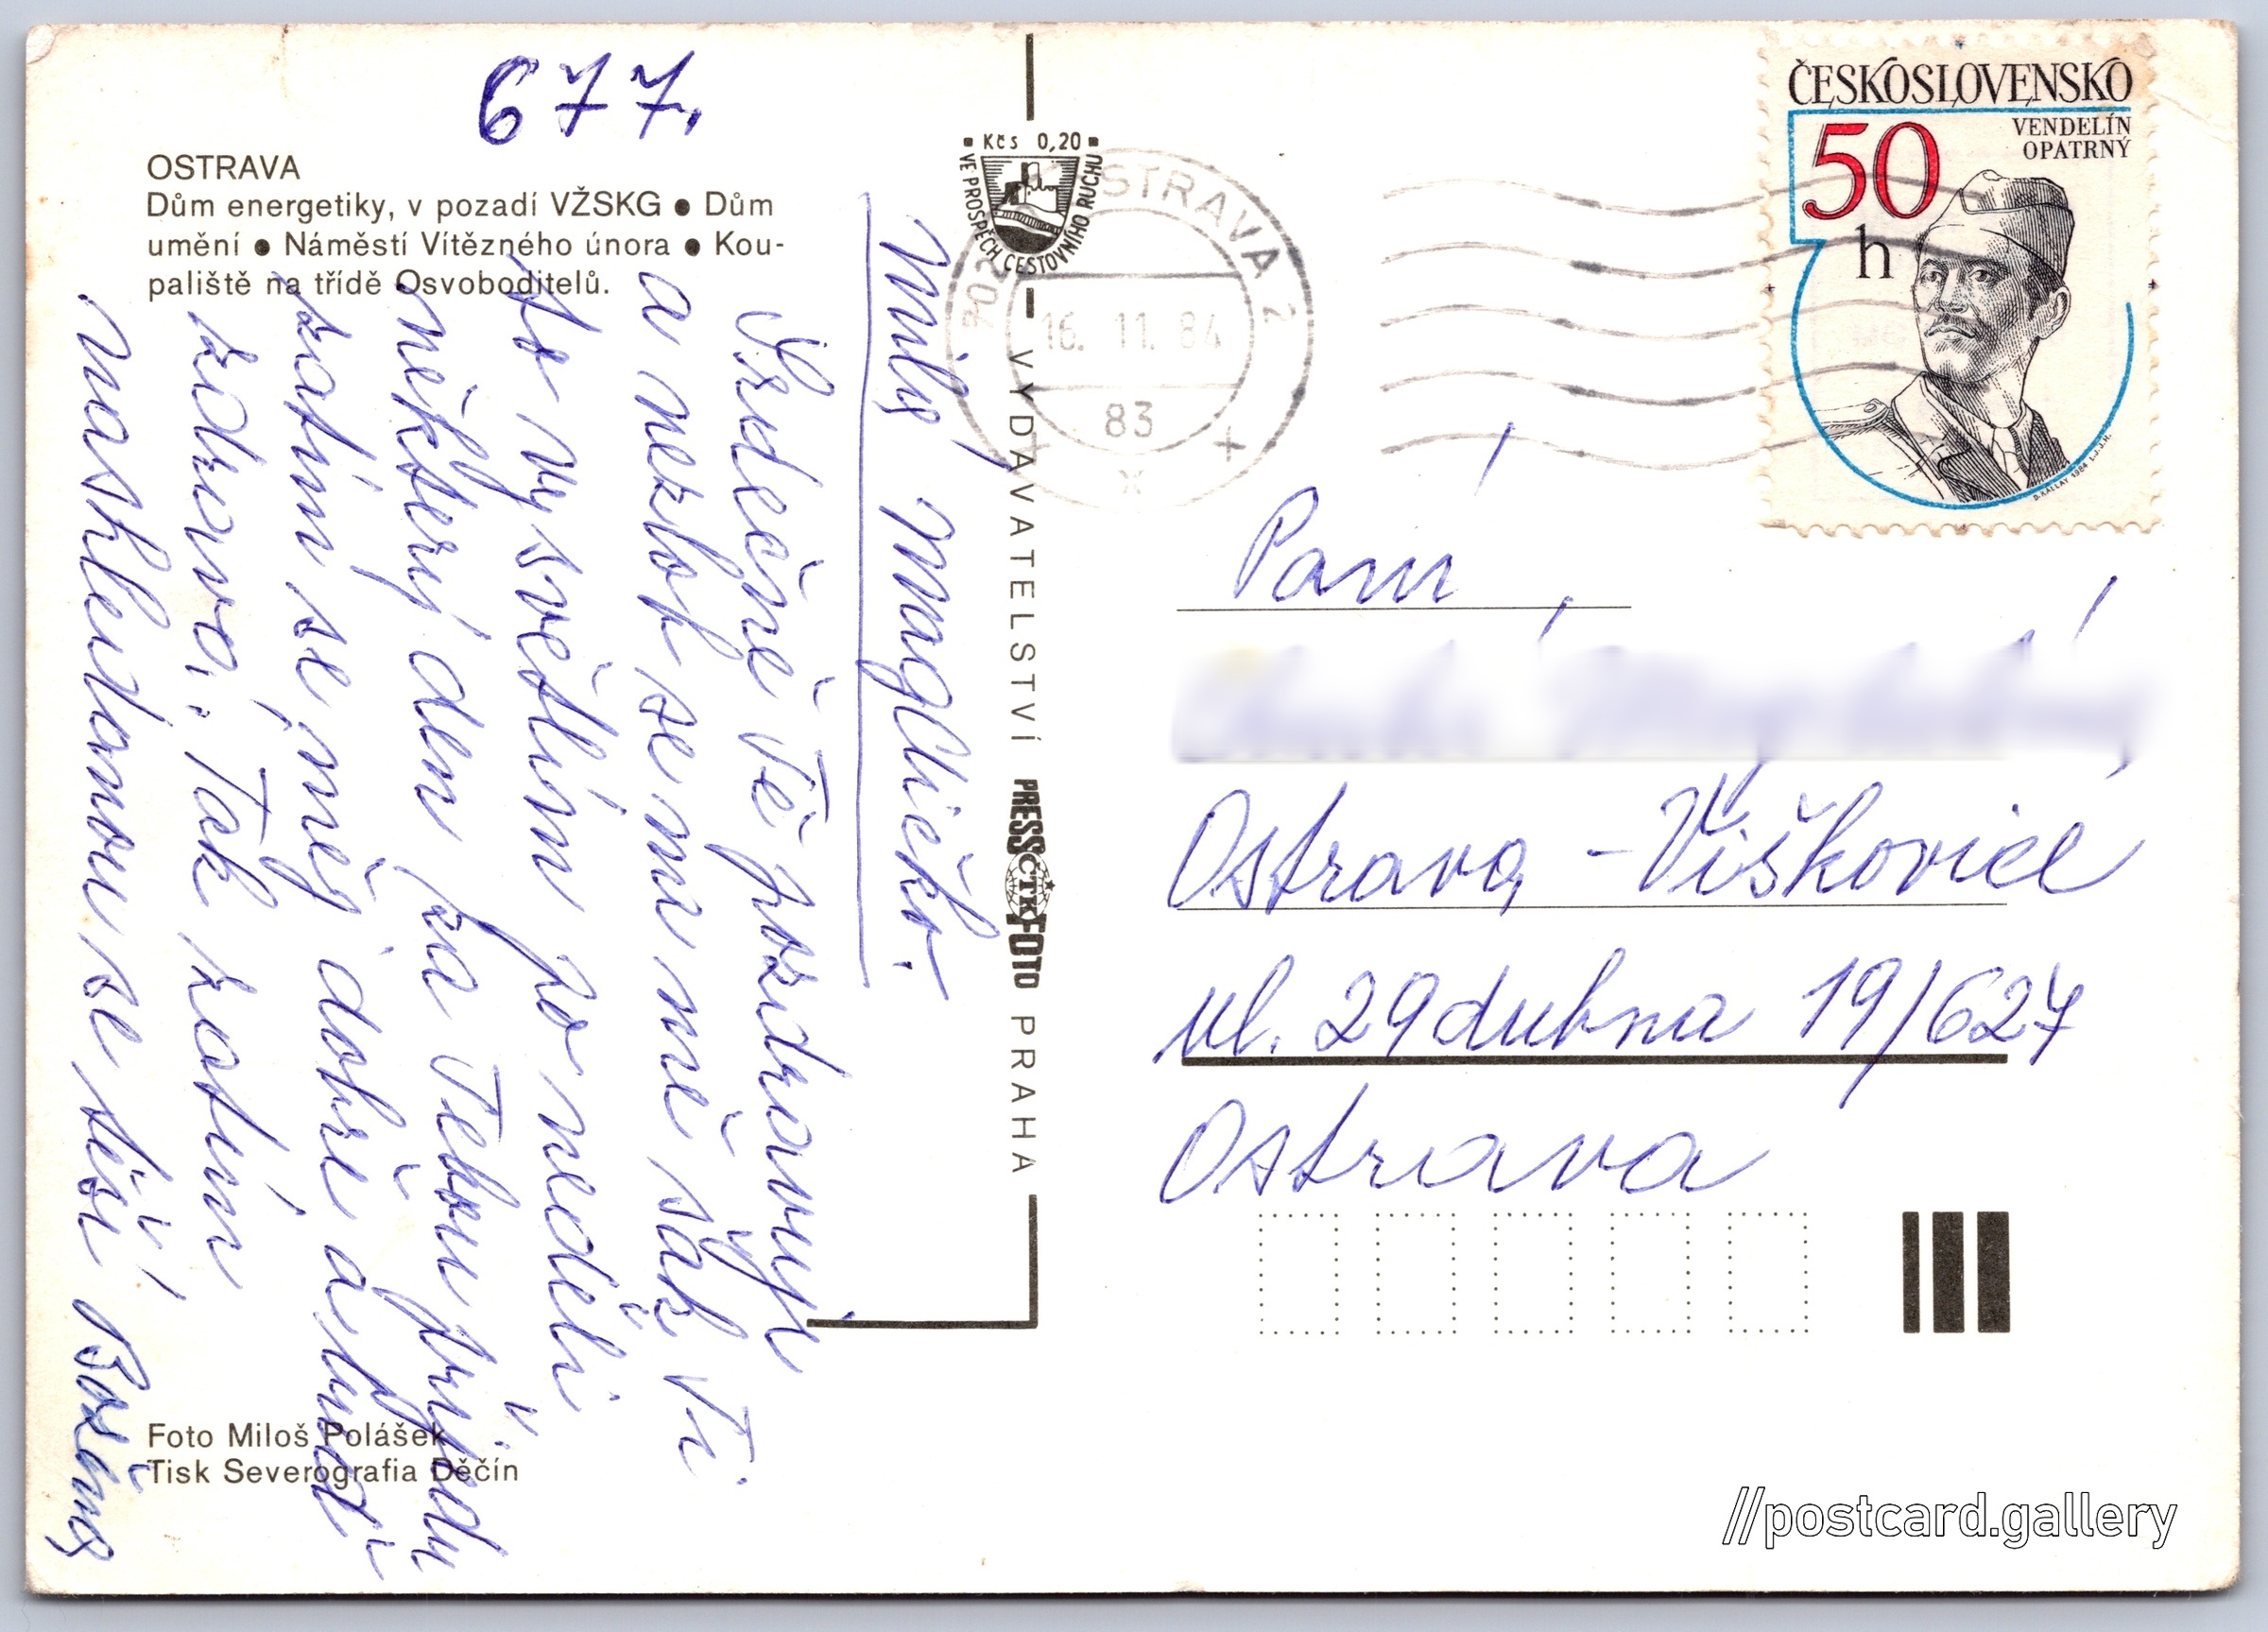 677.
OSTRAVA
Dům energetiky, v pozadí VŽSKG ● Dům
umění ● Náměstí Vítězného února ● Kou-
paliště na třídě Osvoboditelů.
Milá
Srdečně Tě pozdravuji
a nezlob se na mě však Ti
to vysvětlím po neděli
některý den za Tebou přijedu
zatím se měj dobře a buď
zdrava. Tak zatím
naskledanou se těší Božena
Foto Miloš Polášek
Tisk Severografia Děčín
Kčs 0,20
VE PROSPĚCH CESTOVNÍHO RUCHU
VYDAVATELSTVÍ PRESSFOTO PRAHA
ČTK
702 OSTRAVA 2
16. 11. 84
83
ČESKOSLOVENSKO
50
h
VENDELÍN
OPATRNÝ
D. KÁLLAY 1984 L.J.J.H.
Paní
Ostrava - Výškovice
ul. 29 dubna 19/627
Ostrava
//postcard.gallery